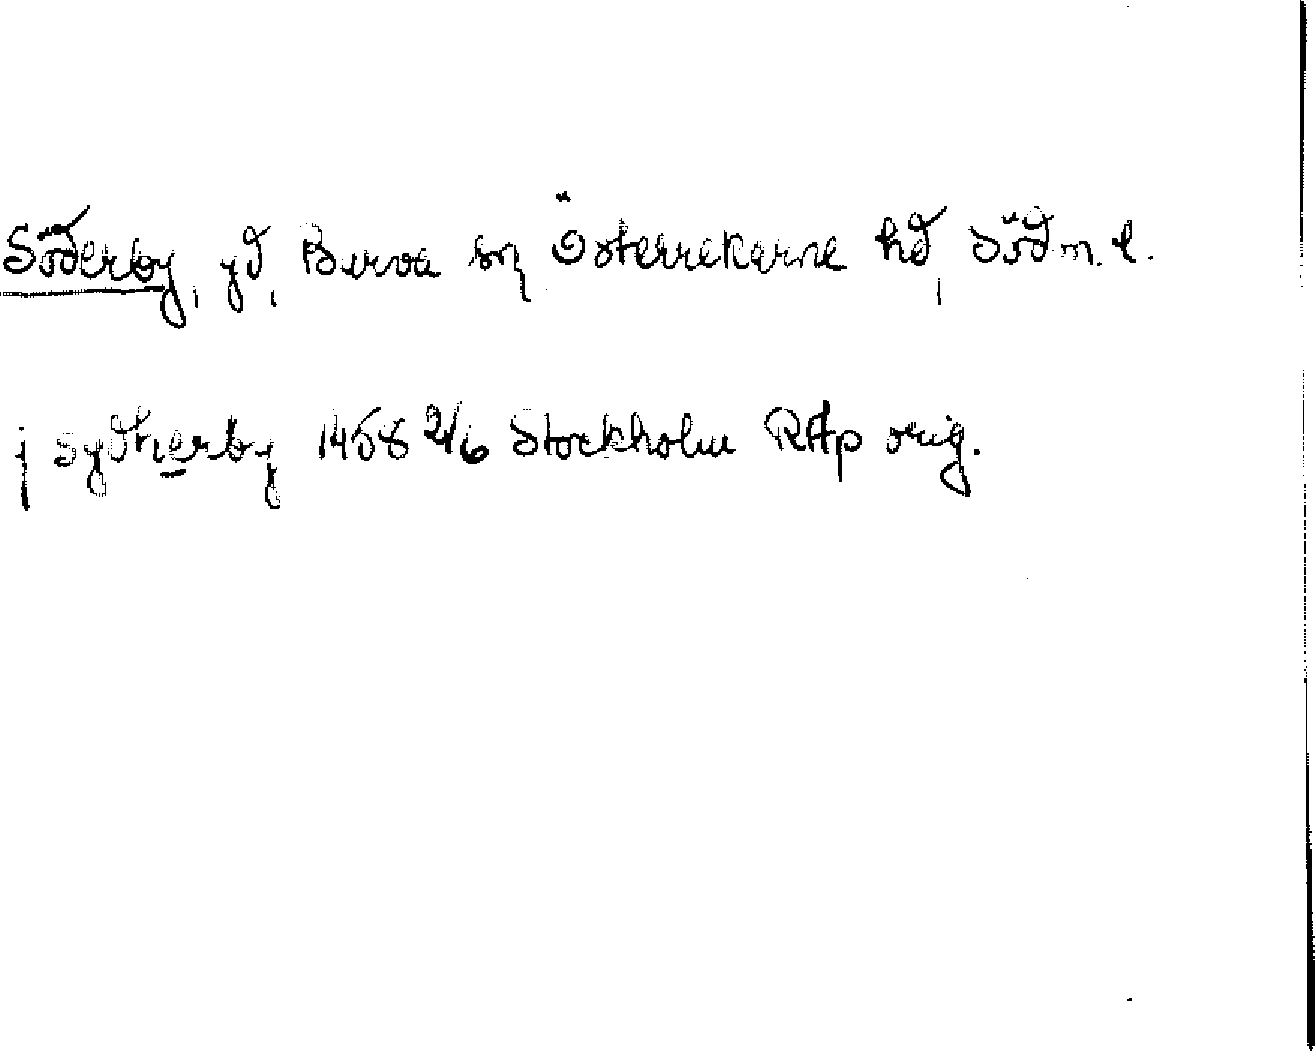 Söderby, gd, Barva sn, Österrekarne hd, Södm. l.
j sydherby 1458 2/6 Stockholm RAp orig.